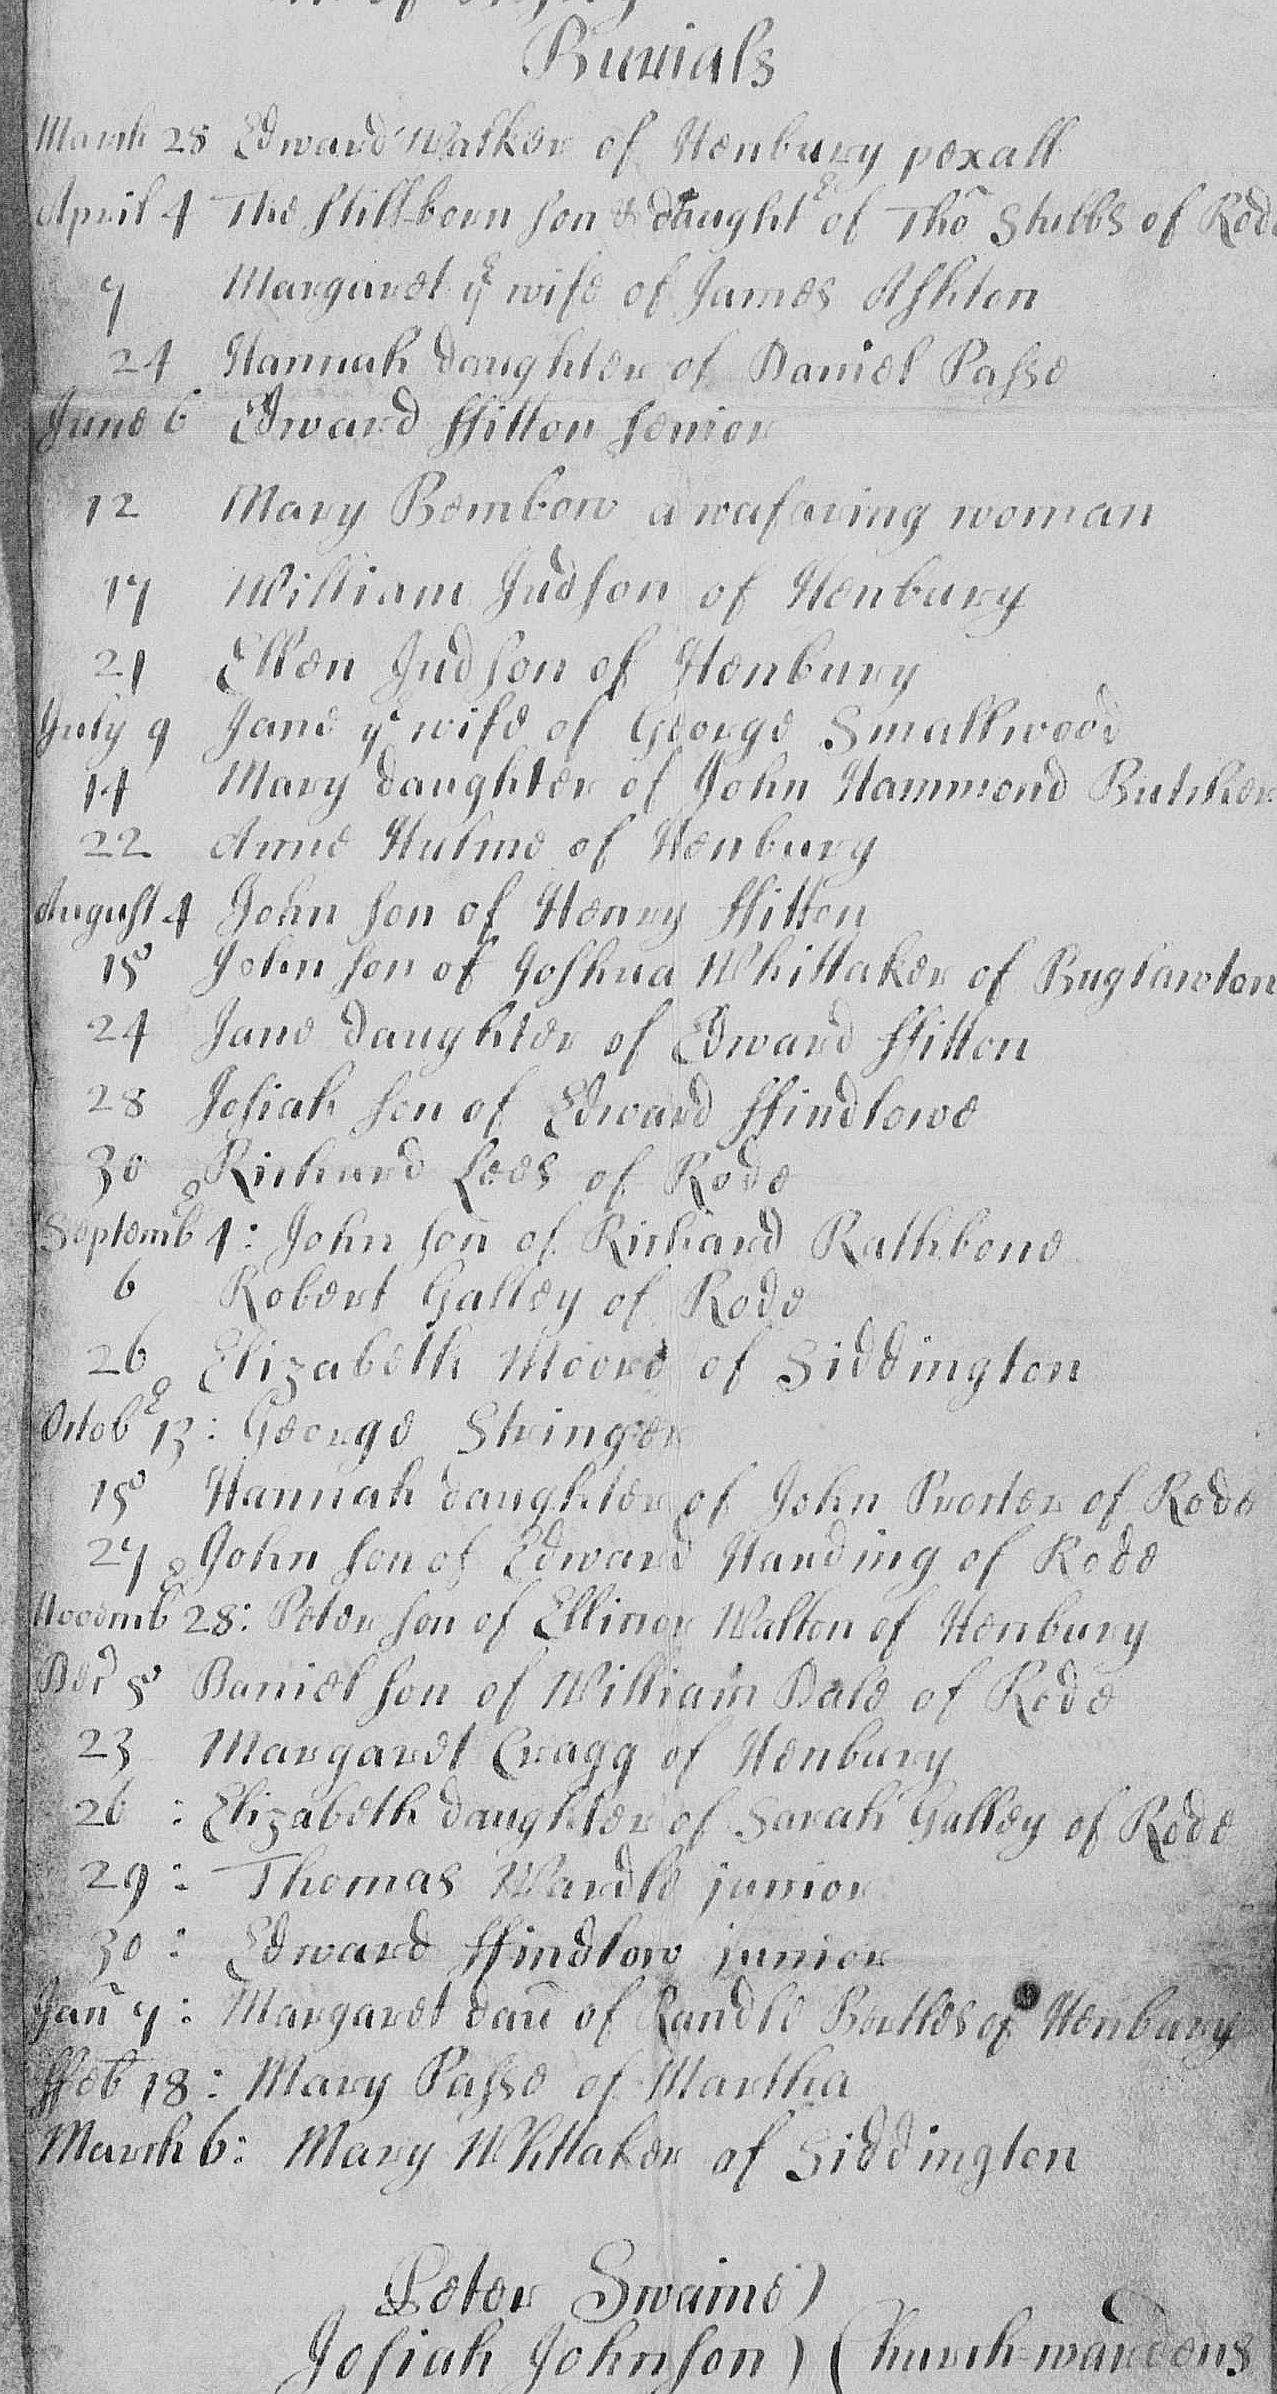 Burials
March 28 Edward Walker of Henbury pexall
April 4 The still-born son & daught^e of Tho Stubbs of Rode
7 Margaret y^e wife of James Ashton
24 Hannah daughter of Daniel Passe
June 6 Edward ffitton senior
12 Mary Bembow a wafaring woman
17 William Judson of Henbury
21 Ellen Judson of Henbury
July 9 Jane y^e wife of George Smallwood
14 Mary daughter of John Hammond Butcher
22 Anne Hulme of Henbury
August 4 John son of Henry ffitton
15 John son of Joshua Whittaker of Buglawton
24 Jane daughter of Edward ffitton
28 Josiah son of Edward ffindlowe
30 Richard Lees of Rode
Septemb^e 4: John son of Richard Rathbone
6 Robert Galley of Rode
26 Elizabeth Moore of Siddington
Octob^e 13: George Stringer
15 Hannah daughter of John Procter of Rode
27 John son of Edward Harding of Rode
Novemb^e 28: Peter son of Ellinor Walton of Henbury
Dec^r 5 Daniel son of William Dale of Rode
23 Margaret Cragg of Henbury
26: Elizabeth daughter of Sarah Galley of Rode
29: Thomas Wardle junior
30: Edward ffindlow junior
Jan 7: Margaret dau of Randle of Henbury
ffeb 18: Mary Passe of Martha
March 6: Mary Whittaker of Siddington
Peter Swaine)
Josiah Johnson) Church-wardens